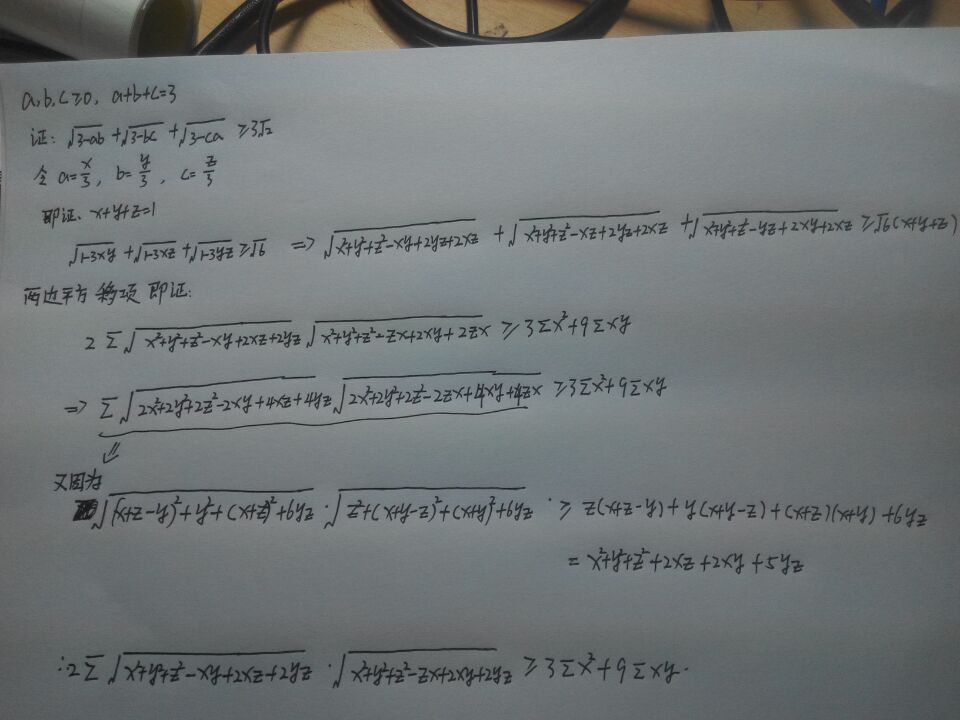 a,b,c≥0, a+b+c=3
证: √(3-ab) + √(3-bc) + √(3-ca) ≥3√2
令 a=x/3, b=y/3, c=z/3
即证、x+y+z=1
√(1-3xy) + √(1-3xz) + √(1-3yz) ≥√6 => √(x²+y²+z²-xy+2yz+2xz) + √(x²+y²+z²-xz+2yz+2xz) + √(x²+y²+z²-yz+2xy+2xz) ≥√6(x+y+z)
两边平方 移项 即证:
2 Σ √(x²+y²+z²-xy+2xz+2yz) √(x²+y²+z²-zx+2xy+2zx) ≥3Σx²+9Σxy
=> Σ √(2x²+2y²+2z²-2xy+4xz+4yz) √(2x²+2y²+2z²-2zx+4xy+4zx) ≥3Σx²+9Σxy
又因为
√((x+z-y)²+y²+(x+z)²+6yz) · √(z²+(x+y-z)²+(x+y)²+6yz) · ≥ z(x+z-y)+y(x+y-z)+(x+z)(x+y)+6yz
= x²+y²+z²+2xz+2xy+5yz
∴2Σ √(x²+y²+z²-xy+2xz+2yz) · √(x²+y²+z²-zx+2xy+2yz) ≥3Σx²+9Σxy.